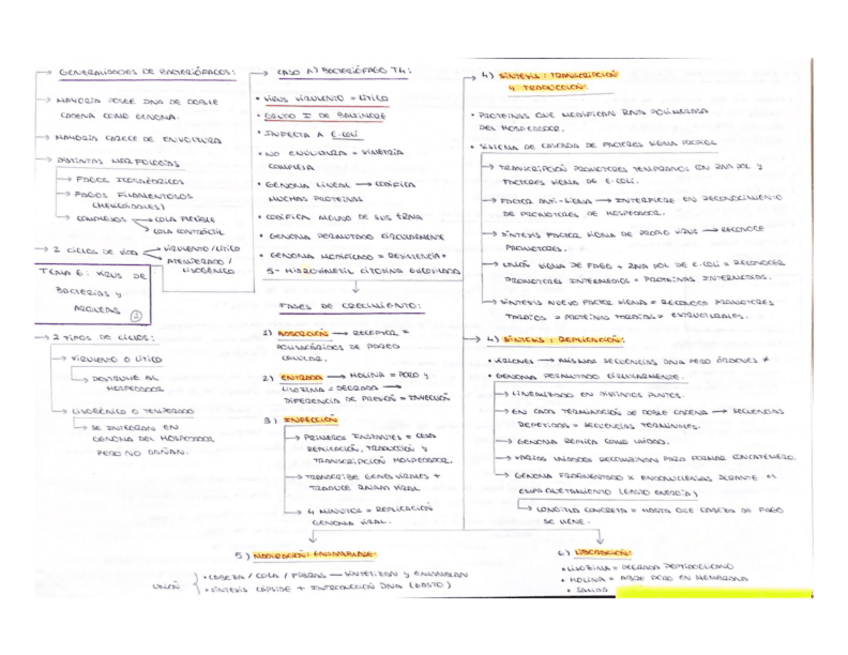 GENERALIDADES DE BACTERIÓFAGOS:
MAYORÍA POSEE DNA DE DOBLE
CADENA COMO GENOMA.
MAYORÍA CARECE DE ENVOLTURA
DISTINTAS MORFOLOGÍAS
FAGOS ICOSAÉDRICOS
FAGOS FILAMENTOSOS
(HELICOIDALES)
COMPLEJOS
COLA FLEXIBLE
COLA CONTRÁCTIL
2 CICLOS DE VIDA
VIRULENTO / LÍTICO
ATEMPERADO /
LISOGÉNICO
TEMA 6: VIRUS DE
BACTERIAS Y
ARQUEAS
2 TIPOS DE CICLOS:
VIRULENTO O LÍTICO
DESTRUYE AL
HOSPEDADOR
LISOGÉNICO O TEMPERADO
SE INTEGRAN EN
GENOMA DEL HOSPEDADOR
PERO NO DAÑAN.
CASO A) BACTERIÓFAGO T4:
• VIRUS VIRULENTO = LÍTICO
• GRUPO I DE BALTIMORE
• INFECTA A E.coli
• NO ENVOLTURA = SIMETRÍA
COMPLEJA
• GENOMA LINEAL → CODIFICA
MUCHAS PROTEÍNAS
• CODIFICA ALGUNO DE SUS tRNA
• GENOMA PERMUTADO CIRCULARMENTE
• GENOMA MODIFICADO = RESISTENCIA =
5- HIDROXIMETIL CITOSINA GLICOSILADO
FASES DE CRECIMIENTO:
1) ADSORCIÓN → RECEPTOR =
POLISACÁRIDOS DE PARED
CELULAR.
2) ENTRADA → HOLINA = PORO Y
LISOZIMA = DEGRADA →
DIFERENCIA DE PRESIÓN = INYECCIÓN
3) INFECCIÓN
PRIMEROS INSTANTES = CESA
REPLICACIÓN, TRADUCCIÓN Y
TRANSCRIPCIÓN HOSPEDADOR.
TRANSCRIBE GENES VIRALES +
TRADUCE RNAm VIRAL
4 MINUTOS = REPLICACIÓN
GENOMA VIRAL.
4) SÍNTESIS: TRANSCRIPCIÓN
Y TRADUCCIÓN:
• PROTEÍNAS QUE MODIFICAN RNA POLIMERASA
DEL HOSPEDADOR.
• SISTEMA DE CASCADA DE FACTORES SIGMA PROPIOS
TRANSCRIPCIÓN PROMOTORES TEMPRANOS CON RNA POL Y
FACTORES SIGMA DE E-COLI.
FACTOR ANTI-SIGMA → INTERFIERE EN RECONOCIMIENTO
DE PROMOTORES DE HOSPEDADOR.
SÍNTESIS FACTOR SIGMA DE PROPIO VIRUS → RECONOCE
PROMOTORES.
UNIÓN SIGMA DE FAGO + RNA POL DE E.COLI = RECONOCER
PROMOTORES INTERMEDIOS = PROTEÍNAS INTERMEDIAS.
SÍNTESIS NUEVO FACTOR SIGMA = RECONOCE PROMOTORES
TARDÍOS = PROTEÍNAS TARDÍAS = ESTRUCTURALES.
4) SÍNTESIS: REPLICACIÓN:
• VIRIONES → MISMAS SECUENCIAS DNA PERO ÓRDENES ≠
• GENOMA PERMUTADO CIRCULARMENTE.
LINEALIZADO EN DISTINTOS PUNTOS.
EN CADA TERMINACIÓN DE DOBLE CADENA → SECUENCIAS
REPETIDAS = SECUENCIAS TERMINALES.
GENOMA REPLICA COMO UNIDAD.
VARIAS UNIDADES RECOMBINAN PARA FORMAR CONCATÉMERO.
GENOMA FRAGMENTADO X ENDONUCLEASAS DURANTE el
EMPAQUETAMIENTO (GASTO ENERGÍA)
LONGITUD CONCRETA = HASTA QUE CABEZA DE FAGO
SE LLENE.
5) MADURACIÓN: ENSAMBLAJE:
UNIÓN
• CABEZA / COLA / FIBRAS → SINTETIZAN Y ENSAMBLAN
• SÍNTESIS CÁPSIDE + INTRODUCCIÓN DNA (GASTO)
6) LIBERACIÓN:
• LISOZIMA = DEGRADA PEPTIDOGLICANO
• HOLINA = ABRE PORO EN MEMBRANA
• SALIDA